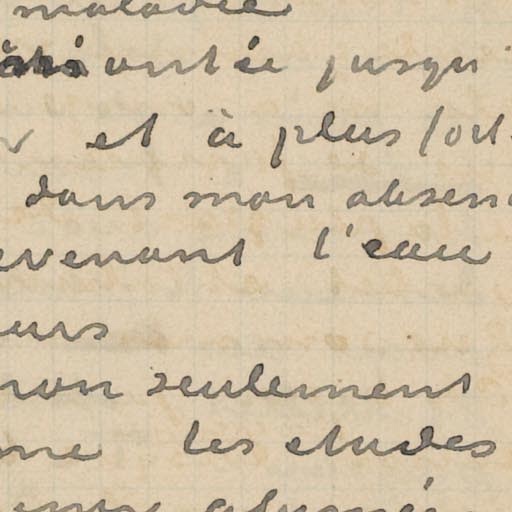 maladie
montée jusqu'
et à plus fort
dans mon absen
evenant l'eau
eurs
non seulement
me les etudes